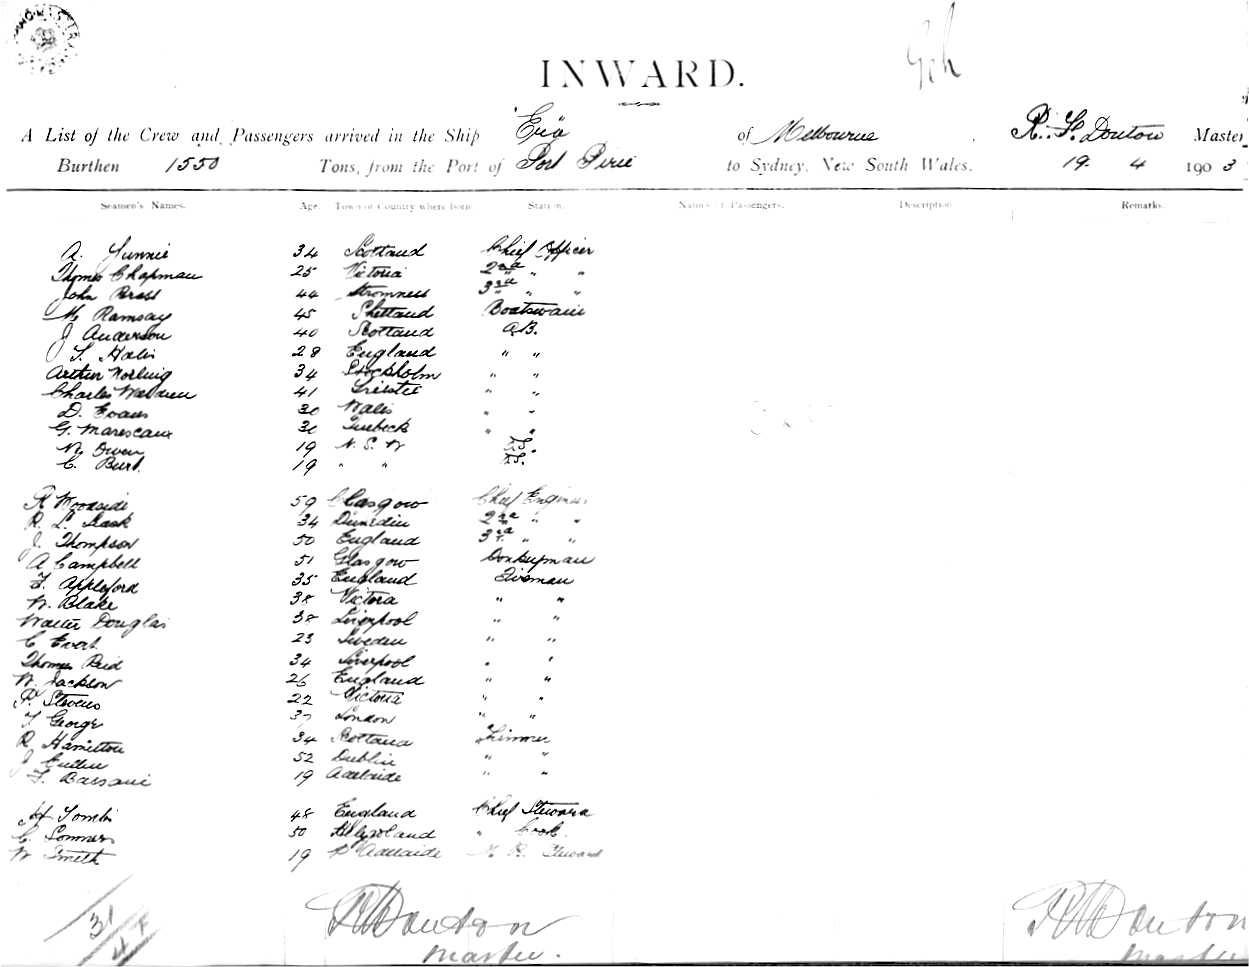 INWARD.
A List of the Crew and Passengers arrived in the Ship Era of Melbourne R. Douton Master
Burthen 1550 Tons, from the Port of Port Pirie to Sydney, New South Wales, 19. 4 1903
Seamen's Names. Age. Town or Country where born Station. Names of Passengers. Description Remarks.
A. 34 Scotland Chief Officer
Thomas Chapman 25 Victoria 2nd " "
John Brass 44 Stromness 3rd " "
Ramsay 45 Shetland Boatswain
J Anderson 40 Scotland A.B.
28 England " "
Arthur 34 Stockholm " "
Charles 41 Trieste " "
D. Evans 30 Wales " "
G. Marescaux 30 Quebeck " "
W. Owen 19 N. S. W O.S.
C. Burt 19 " " O.S.
R Woodside 59 Glasgow Chief Engineer
R. L. 34 Dunedin 2nd " "
J. Thompson 50 England 3rd " "
A Campbell 51 Glasgow Donkeyman
F. Appleford 35 England Fireman
W. Blake 38 Victoria " "
Walter Douglas 38 Liverpool " "
C Evert 23 Sweden " "
Thomas Reid 34 Liverpool " "
W. Jackson 26 England " "
P. Stevens 22 Victoria " "
F George 37 London " "
R Hamilton 34 Scotland Trimmer
J 52 Dublin " "
F. Bassani 19 Adelaide " "
H Tomlin 48 England Chief Steward
C. Sommers 50 Heligoland " Cook.
W Smith 19 Pt Adelaide M. R. Steward
31
Douton Douton
Master. Master